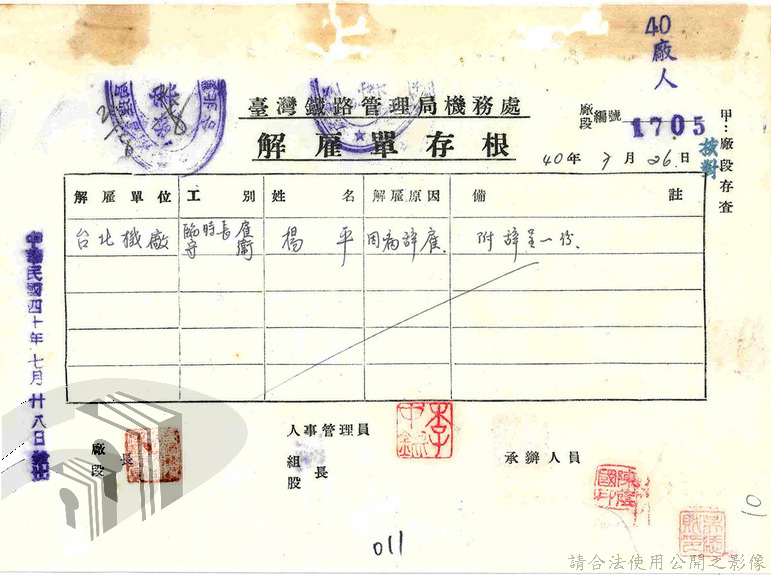 40
廠
人
臺灣鐵路管理局機務處
解雇單存根
廠段 編號 1705
40年7月26日
核對
甲：廠段存查
解雇單位 工別 姓名 解雇原因 備註
台北機廠 臨時長雇守衛 楊平 因病辞雇、 附辞呈一份、
中華民國四十年七月廿八日
廠段長
人事管理員
李中錄
組股長
承辦人員
011
10
請合法使用公開之影像